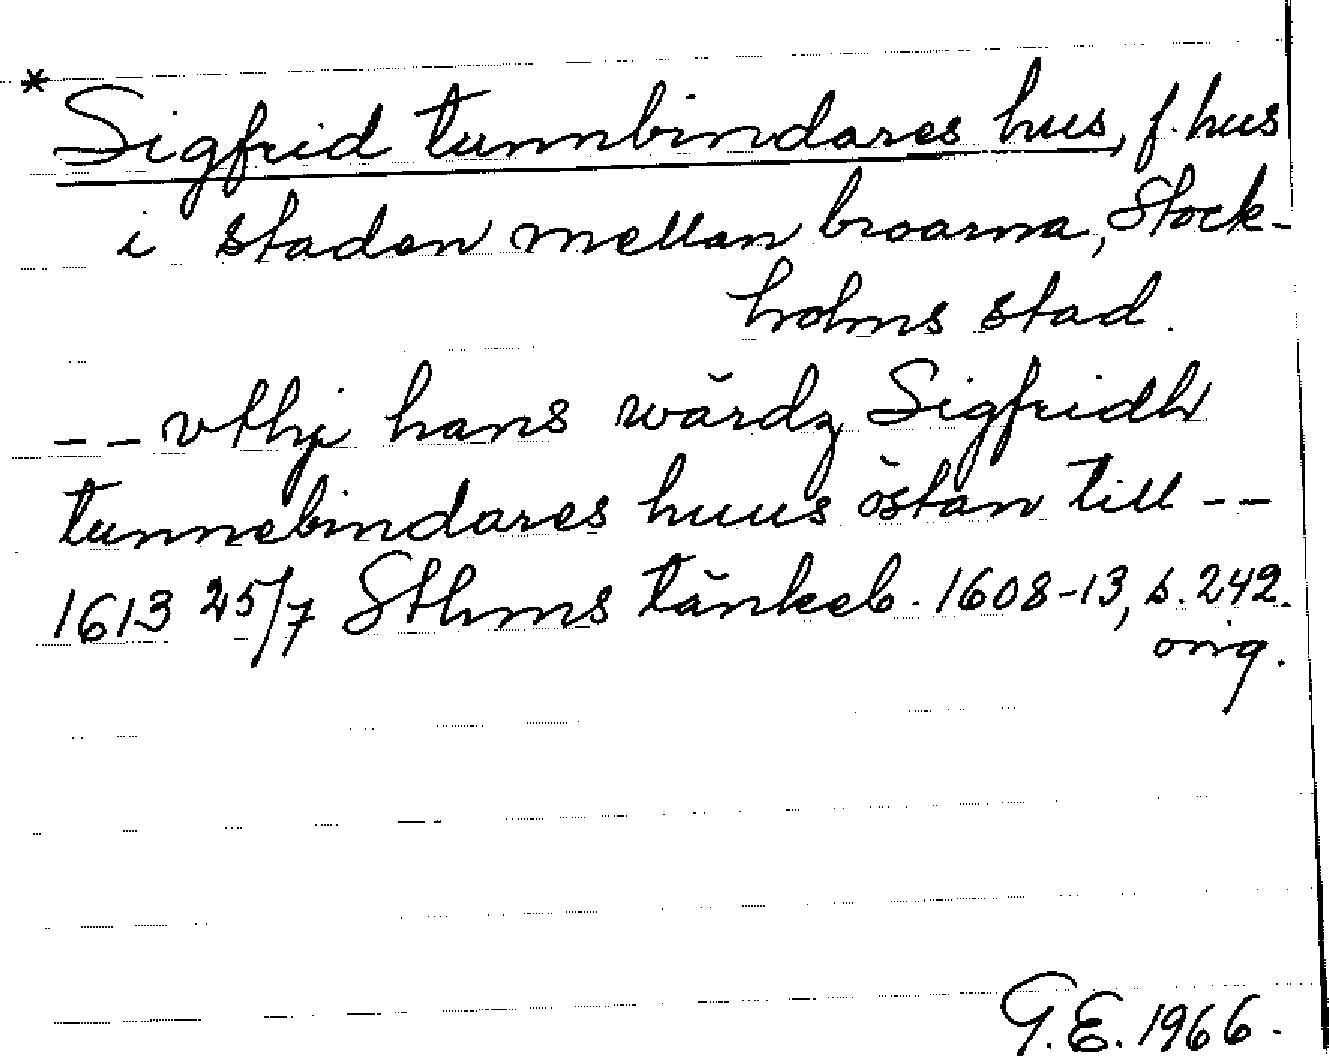 * Sigfrid tunnbindares hus, f. hus
i staden mellan broarna, Stock-
holms stad.
-- vthj hans wärdz Sigfridh
tunnebindares huus östan till --
1613 25/7 Sthms tänkeb. 1608-13, s. 242.
orig.
G.E. 1966.